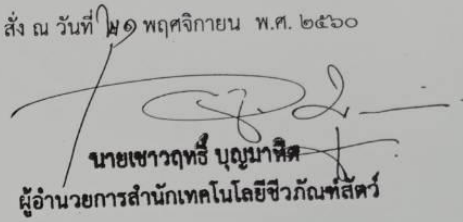 สั่ง ณ วันที่ ๒๑ พฤศจิกายน พ.ศ. ๒๕๖๐
นายเชาวฤทธิ์ บุญมาทิต
ผู้อำนวยการสำนักเทคโนโลยีชีวภัณฑ์สัตว์